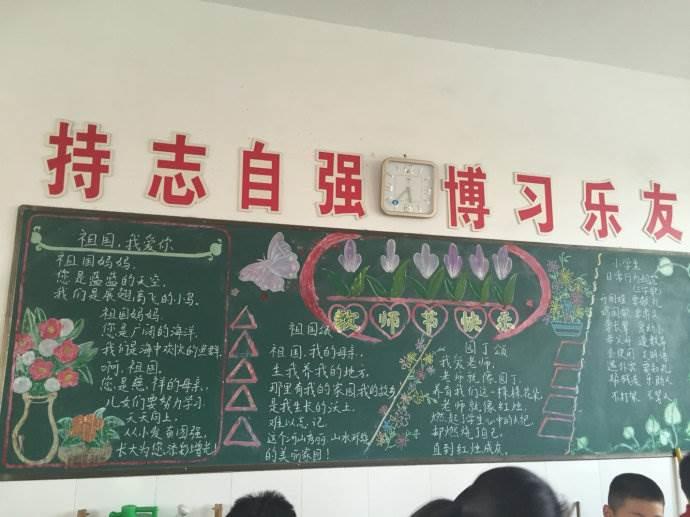 持志自强 博习乐友
祖国,我爱你
祖国妈妈,
您是蓝蓝的天空,
我们是展翅高飞的小鸟.
祖国妈妈,
您是广阔的海洋,
我们是海中欢快的鱼群.
啊,祖国.
您是慈祥的母亲,
儿女们要努力学习.
天天向上.
从小发奋图强.
长大为您添彩增光!
教师节快乐
祖国颂
祖国,我的母亲,
生我养我的地方,
那里有我的家园我的故乡
是我生长的沃土
难以忘记.
这个河山秀丽,山水环绕
的美丽家园!
园丁颂
我爱老师,
老师就像园丁,
养育我们这一棵棵花朵.
老师就像红烛,
燃起学生心中的人记
却燃烧自己,
直到红烛成灰.
小学生
日常行为